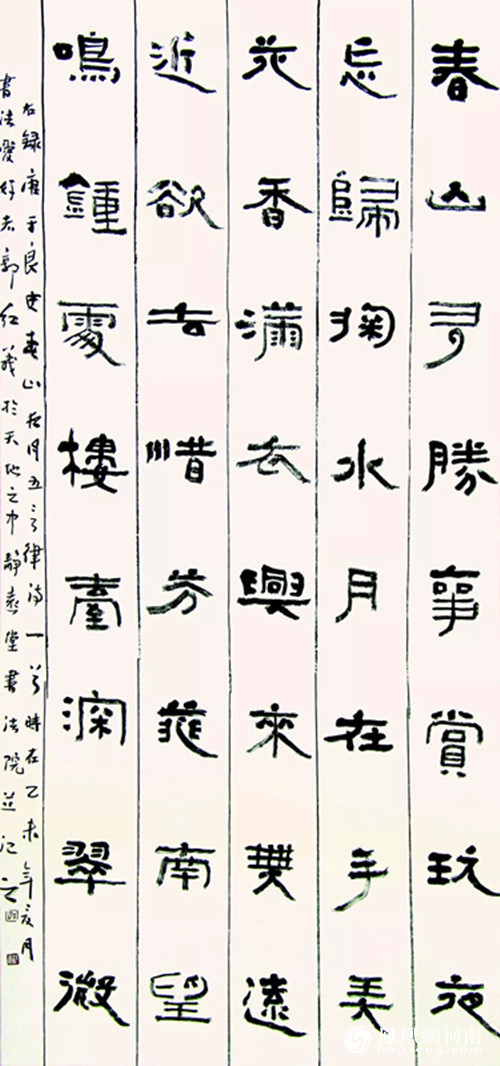 春山多勝事賞玩夜
忘歸掬水月在手弄
花香滿衣興來無遠
近欲去惜芳菲南望
鳴鍾處樓臺深翠微
右錄唐于良史春山夜月五言律詩一首時在乙未年夏月
書法愛好者郭紅義於天地之中靜遠堂書法院並記之
鳳凰網河南